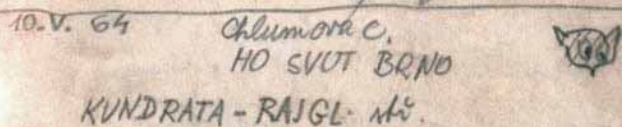 10.V. 64 Chlumová C.
HO SVUT BRNO
KUNDRATA - RAJGL. stř.